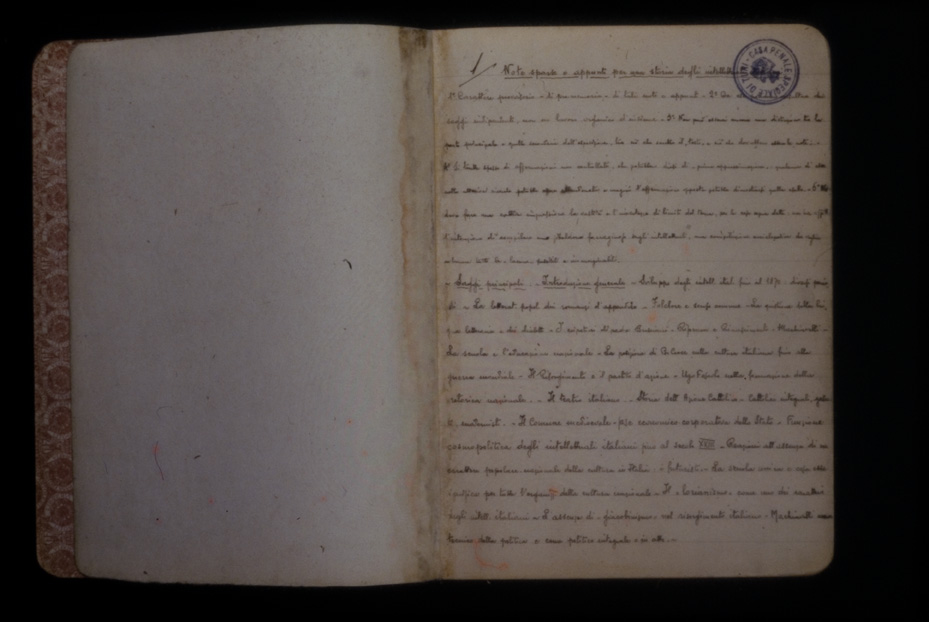 1/ Note sparse e appunti per una storia degli intellettuali
CASA PENALE SPECIALE DI TURI
1° Carattere provvisorio – di pro-memoria – di tali note e appunti – 2°
saggi indipendenti, non un lavoro organico d'insieme – 3° Non può esserci ancora una distinzione tra la
parte principale e quelle secondarie dell'esposizione, tra ciò che sarebbe il "testo" e ciò che dovrebbero essere le "note". –
4° Si tratta spesso di affermazioni non controllate, che potrebbero dirsi di "prima approssimazione": qualcuna di esse
nelle ulteriori ricerche potrebbe essere abbandonata e magari l'affermazione opposta potrebbe dimostrarsi quella esatta. – 5° Non
deve fare una cattiva impressione la vastità e l'incertezza di limiti del tema, per le cose sopra dette: non ha affatto
l'intenzione di compilare uno zibaldone farraginoso sugli intellettuali, una compilazione enciclopedica che voglia
colmare tutte le "lacune" possibili e immaginabili.
– Saggi principali: Introduzione generale – Sviluppo degli intell. ital. fino al 1870: diversi perio-
di – La letterat. popol. dei romanzi d'appendice – Folclore e senso comune – La quistione della lin-
gua letteraria e dei dialetti – I nipotini di padre Bresciani – Riforma e Rinascimento – Machiavelli –
La scuola e l'educazione nazionale – La posizione di B. Croce nella cultura italiana fino alla
guerra mondiale – Il Risorgimento e il partito d'azione – Ugo Foscolo nella formazione della
retorica nazionale – Il teatro italiano – Storia dell'Azione Cattolica: Cattolici integrali, gesui-
ti, modernisti – Il Comune medioevale, fase economico-corporativa dello Stato – Funzione
cosmopolitica degli intellettuali italiani fino al secolo XVIII – Reazioni all'assenza di un
carattere popolare-nazionale della cultura in Italia: i futuristi – La scuola unica e cosa essa
significa per tutta l'organizzazione della cultura nazionale – Il "lorianismo" come uno dei caratteri
degli intell. italiani – L'assenza di "giacobinismo" nel risorgimento italiano – Machiavelli come
tecnico della politica e come politico integrale o in atto. –